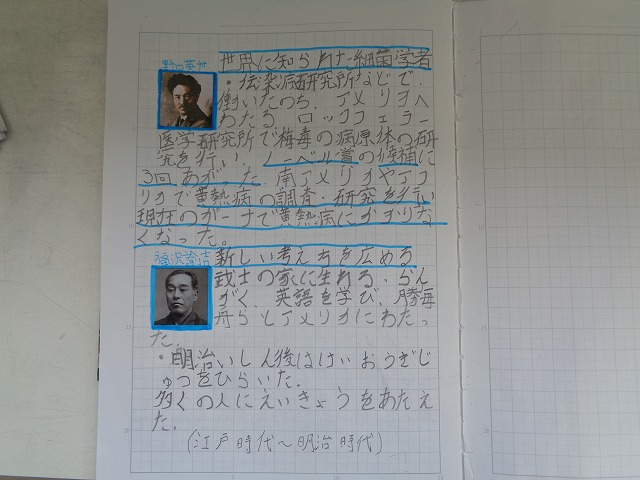 野口英世
世界に知られた細菌学者
・伝染病研究所などで、
働いたのち、アメリカへ
わたる。ロックフェラー
医学研究所で梅毒の病原体の研
究を行い、ノーベル賞の候補に
3回あがった。南アメリカやアフ
リカで黄熱病の調査・研究を行い
現在のガーナで黄熱病にかかりな
くなった。
福沢諭吉
新しい考え方を広める
武士の家に生れる。らん
がく、英語を学び、勝海
舟らとアメリカにわたっ
た。
・明治いしん後はけいおうぎじ
ゅつをひらいた。
多くの人にえいきょうをあたえ
た。
(江戸時代~明治時代)